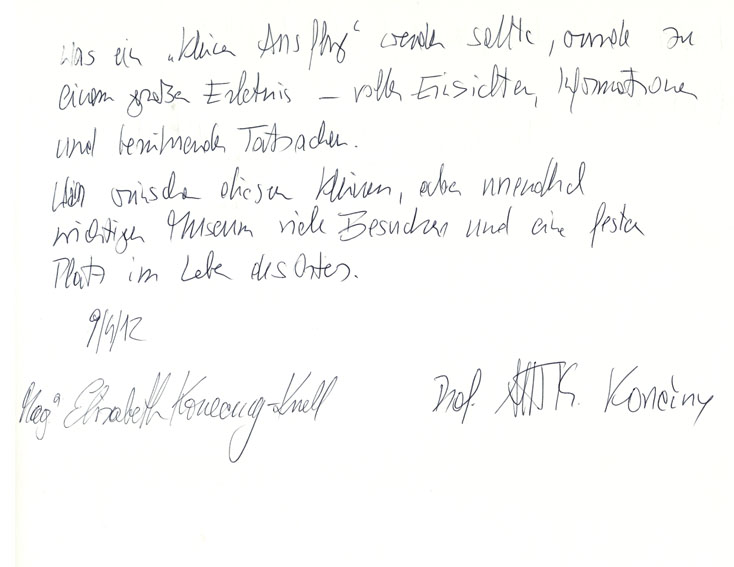 Was ein „kleiner Ausflug“ werden sollte, wurde zu
einem großen Erlebnis – voller Einsichten, Informationen
und berührender Tatsachen.
Wir wünschen diesem kleinen, aber unendlich
wichtigen Museum viele Besucher und einen festen
Platz im Leben des Ortes.
9/4/12
Mag<sup>a</sup> Elisabeth Konecny-Knell
Prof. K. Konecny